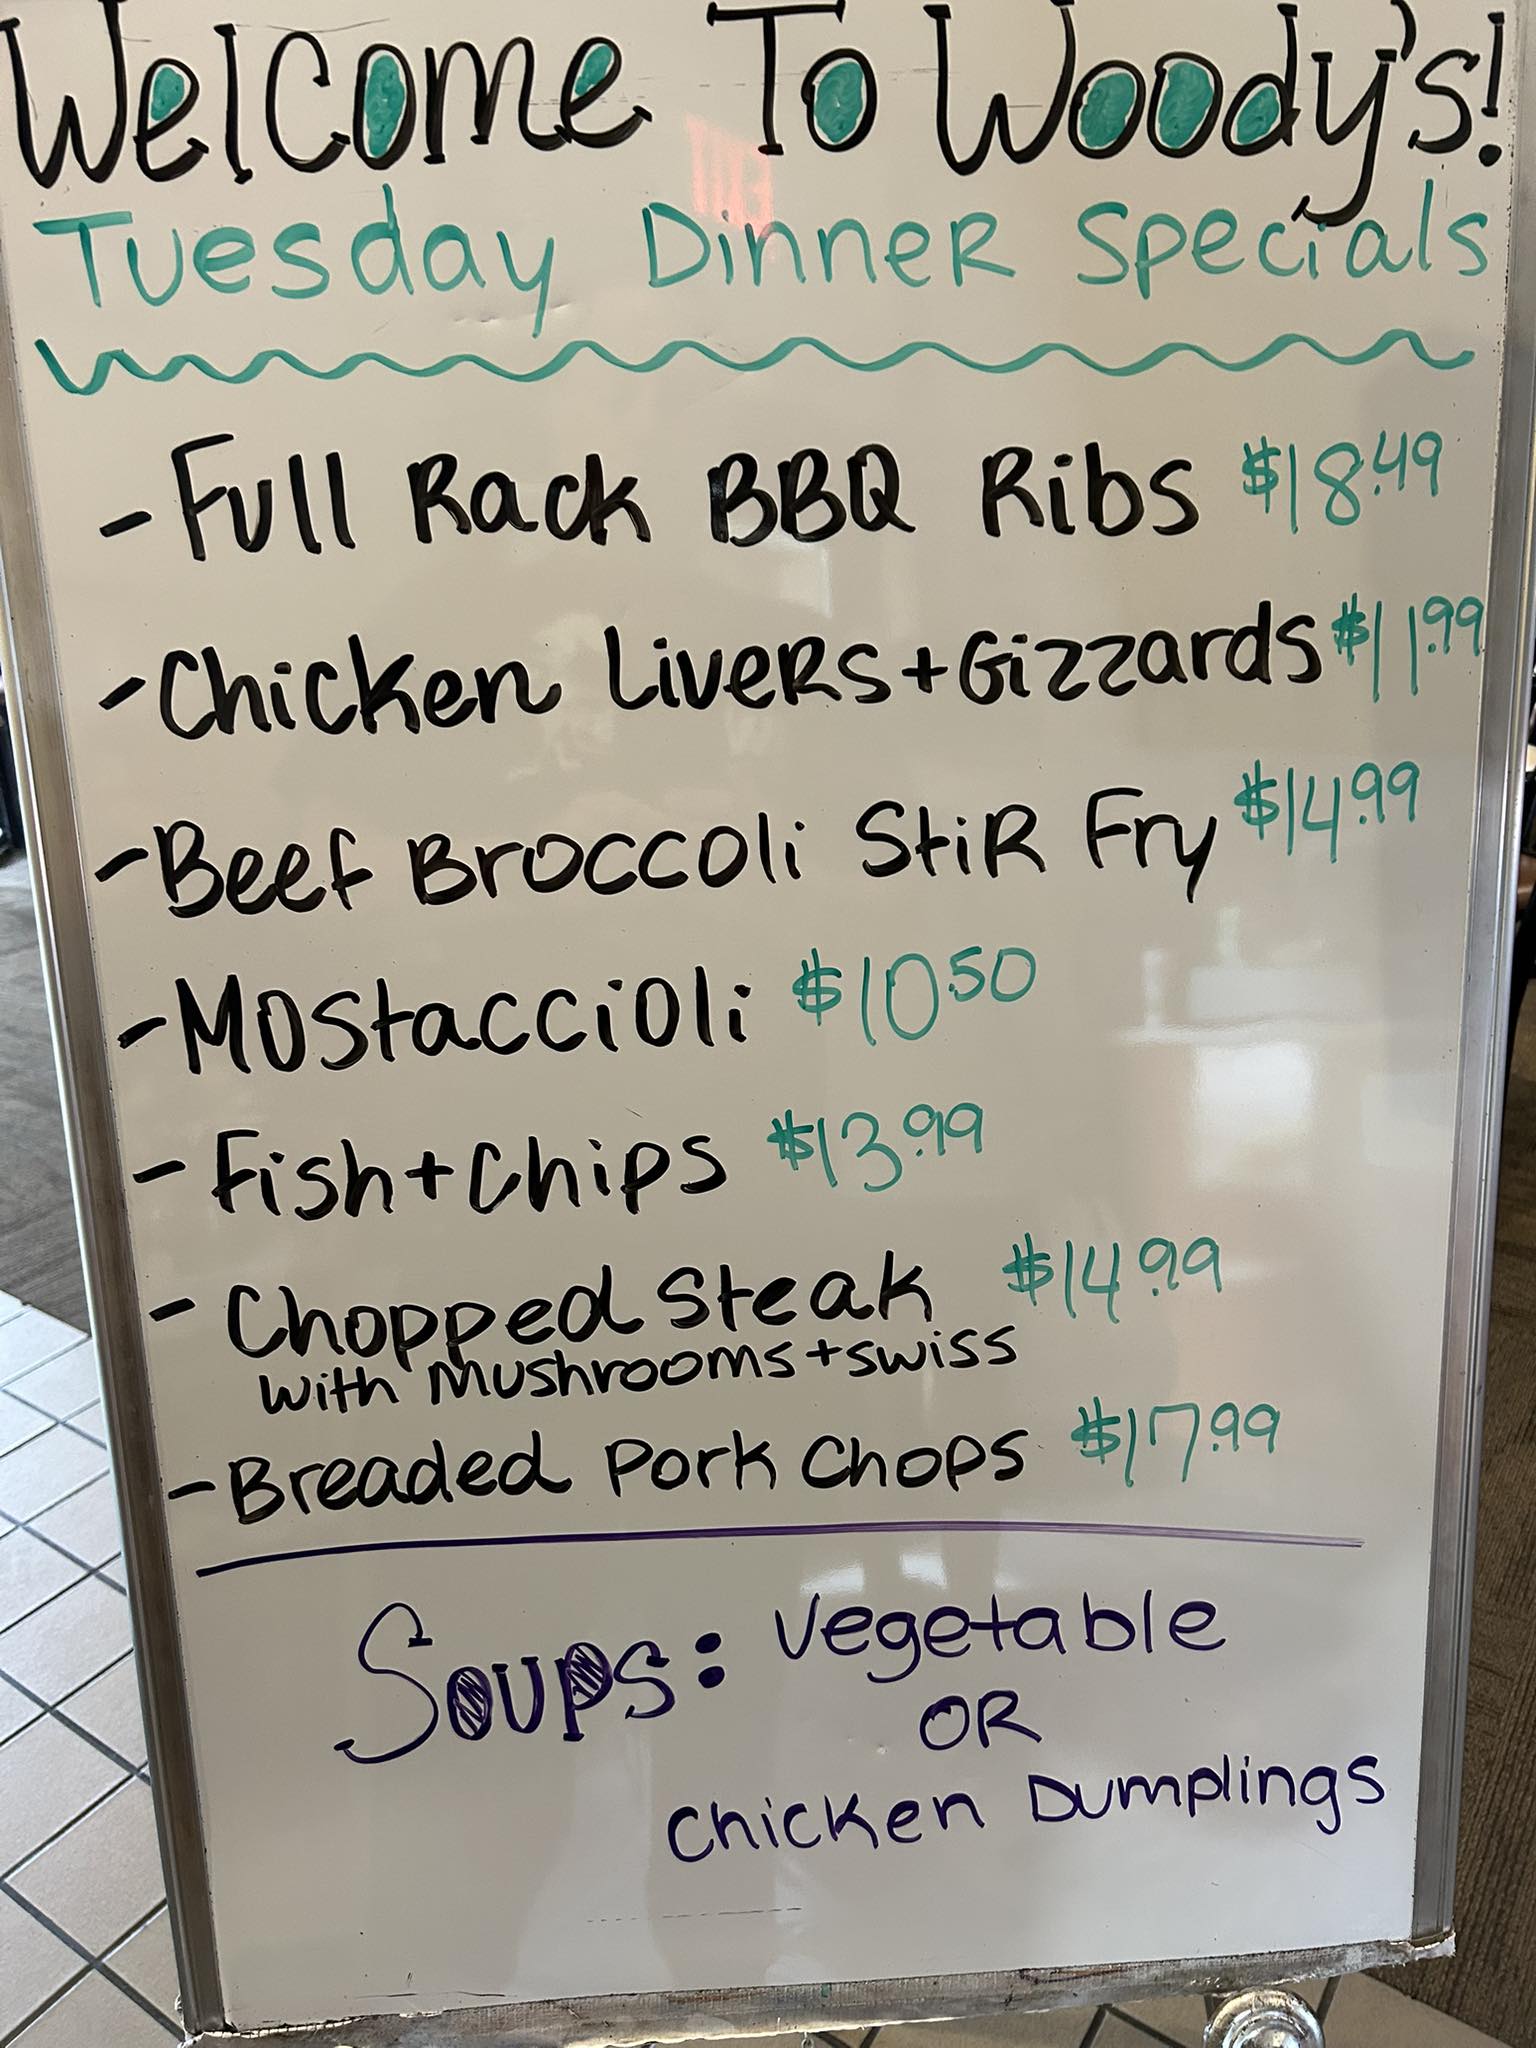 Welcome To Woody's!
Tuesday Dinner Specials
- Full Rack BBQ Ribs $18.49
- Chicken Livers + Gizzards $11.99
- Beef Broccoli Stir Fry $14.99
- Mostaccioli $10.50
- Fish + Chips $13.99
- Chopped Steak $14.99
with Mushrooms + Swiss
- Breaded Pork Chops $17.99
Soups: Vegetable
OR
Chicken Dumplings